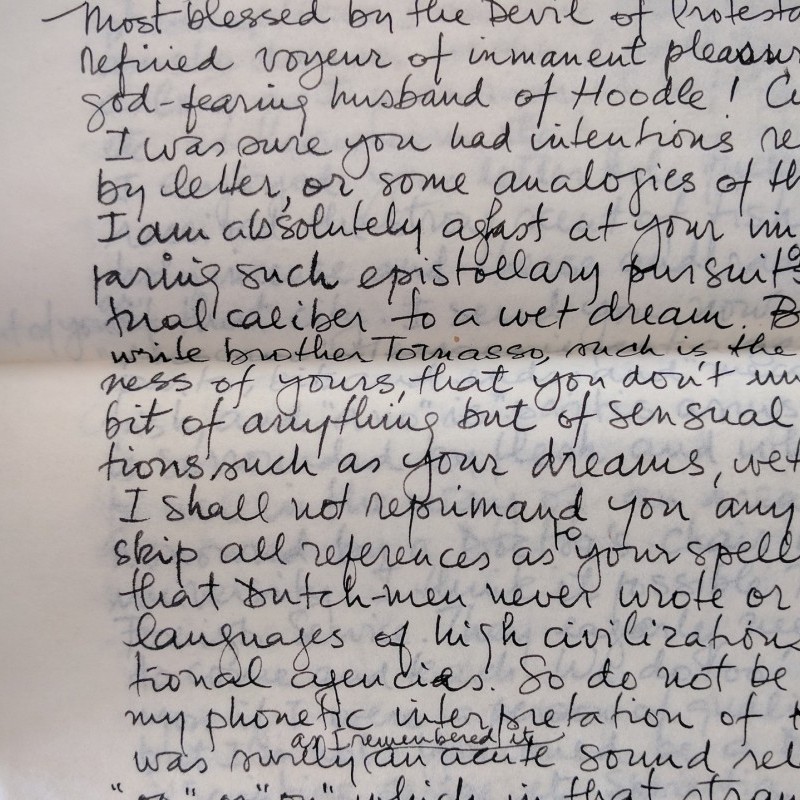 Most blessed by the Devil of Protesta
refined voyeur of inmanent pleasur
god-fearing husband of Hoodle! Cu
I was sure you had intentions re
by letter, or some analogies of th
I am absolutely agast at your im
paring such epistollary pursuits
tual caliber to a wet dream. B
write brother Tomasso, such is the
ness of yours, that you don't un
bit of anything but of sensual
tions, such as your dreams, wet
I shall not reprimand you any
skip all references as to your spell
that Dutch-men never wrote or
languages of high civilizations
tional agencies. So do not be
my phonetic interpretation of t
as I remembered it
was surely (an acute sound rel
which in that stran